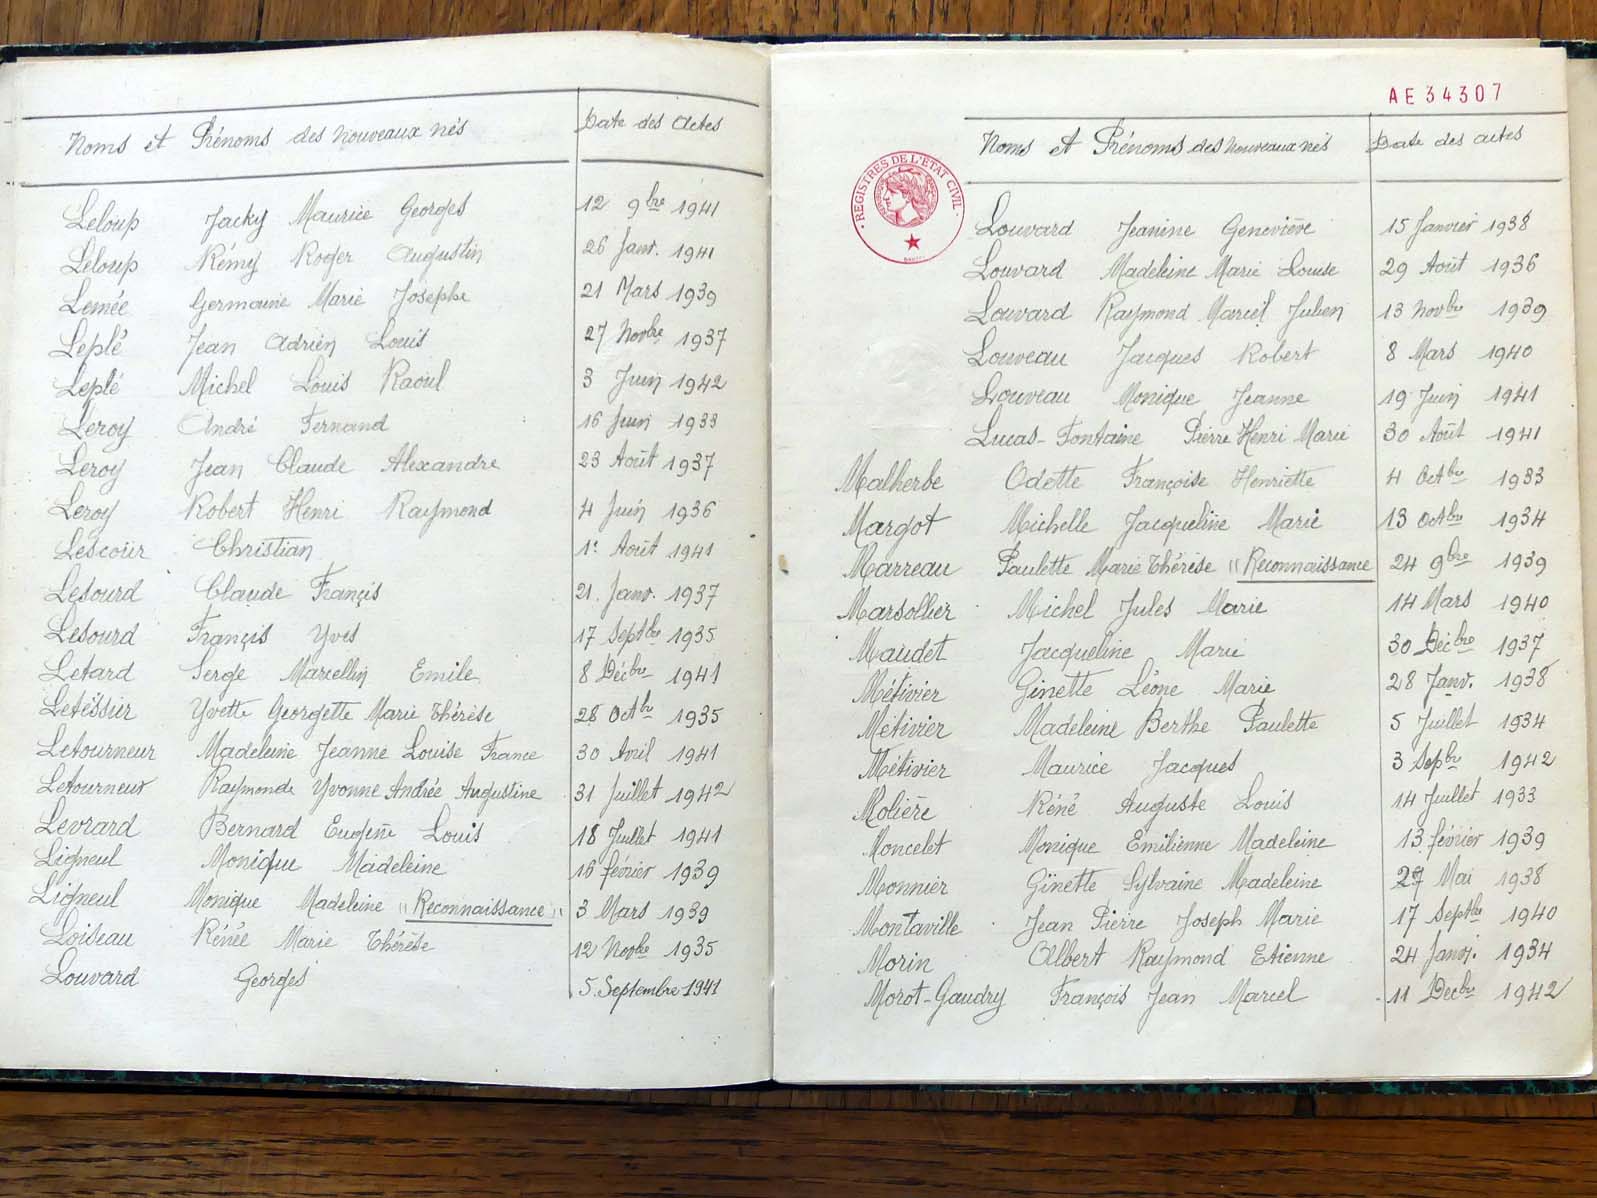 Noms et Prénoms des nouveaux nés Date des actes
Leloup Jacky Maurice Georges 12 9bre 1941
Leloup Rémy Roger Augustin 26 Janv. 1941
Lemée Germaine Marie Josephe 21 Mars 1939
Leplé Jean Adrien Louis 27 Novbre 1937
Leplé Michel Louis Raoul 3 Juin 1942
Leroy André Fernand 16 Juin 1933
Leroy Jean Claude Alexandre 23 Août 1937
Leroy Robert Henri Raymond 4 Juin 1936
Lescoür Christian 1er Août 1941
Lesourd Claude Françis 21. Janv. 1937
Lesourd Françis Yves 17 Septbre 1935
Letard Serge Marcellin Emile 8 Décbre 1941
Letessier Yvette Georgette Marie Thérèse 28 Octbre 1935
Letourneur Madeleine Jeanne Louise France 30 Avril 1941
Letourneur Raymonde Yvonne Andrée Augustine 31 Juillet 1942
Levrard Bernard Eugène Louis 18 Juillet 1941
Ligneul Monique Madeleine 16 février 1939
Ligneul Monique Madeleine "Reconnaissance" 3 Mars 1939
Loiseau Rénée Marie Thérèse 12 Novbre 1935
Louvard Georges 5. Septembre 1941
AE34307
REGISTRES DE L'ÉTAT CIVIL
Noms et Prénoms des nouveaux nés Date des actes
Louvard Jeanine Geneviève 15 Janvier 1938
Louvard Madeleine Marie Louise 29 Août 1936
Louvard Raymond Marcel Julien 13 Novbre 1939
Louveau Jacques Robert 8 Mars 1940
Louveau Monique Jeanne 19 Juin 1941
Lucas-Fontaine Pierre Henri Marie 30 Août 1941
Malherbe Odette Françoise Henriette 4 Octbre 1933
Margot Michelle Jacqueline Marie 13 Octbre 1934
Marreau Paulette Marie Thérèse "Reconnaissance 24 9bre 1939
Marsollier Michel Jules Marie 14 Mars 1940
Maudet Jacqueline Marie 30 Décbre 1937
Métivier Ginette Léone Marie 28 Janv. 1938
Métivier Madeleine Berthe Paulette 5 Juillet 1934
Métivier Maurice Jacques 3 Sepbre 1942
Molière Réné Auguste Louis 14 Juillet 1933
Moncelet Monique Emilienne Madeleine 13 février 1939
Monnier Ginette Sylvaine Madeleine Mai 1938
Montaville Jean Pierre Joseph Marie 17 Septbre 1940
Morin Albert Raymond Etienne 24 Janv. 1934
Morot-Gaudry François Jean Marcel 11 Decbre 1942